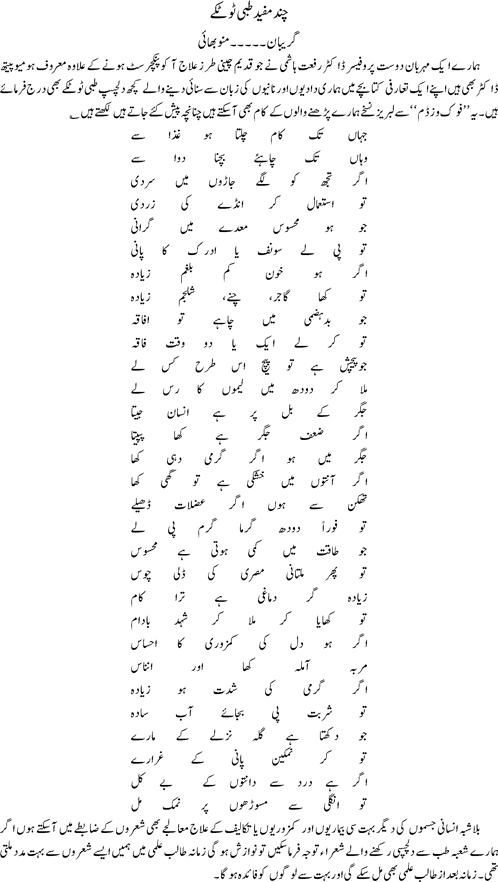 چند مفید طبی ٹوٹکے
گریبان۔۔۔۔۔منو بھائی
ہمارے ایک مہربان دوست پروفیسر ڈاکٹر رفعت ہاشمی نے جو قدیم چینی طرز علاج آکو پنکچرسٹ ہونے کے علاوہ معروف ہومیو پیتھ
ڈاکٹر بھی ہیں اپنے ایک تعارفی کتابچے میں ہماری دادیوں اور نانیوں کی زبان سے سنائی دینے والے کچھ دلچسپ طبی ٹوٹکے بھی درج فرمائے
ہیں۔ یہ ’’فوک وزڈم‘‘ سے لبریز نسخے ہمارے پڑھنے والوں کے کام بھی آسکتے ہیں چنانچہ پیش کئے جاتے ہیں لکھتے ہیں ؎
جہاں تک کام چلتا ہو غذا سے
وہاں تک چاہئے بچنا دوا سے
اگر تجھ کو لگے جاڑوں میں سردی
تو استعمال کر انڈے کی زردی
جو ہو محسوس معدے میں گرانی
تو پی لے سونف یا ادرک کا پانی
اگر ہو خون کم بلغم زیادہ
تو کھا گاجر، چنے، شلجم زیادہ
جو بدہضمی میں چاہے تو افاقہ
تو کر لے ایک یا دو وقت فاقہ
جو پیچش ہے تو پیچ اس طرح کس لے
ملا کر دودھ میں لیموں کا رس لے
جگر کے بل پر ہے انسان جیتا
اگر ضعف جگر ہے کھا پپیتا
جگر میں ہو اگر گرمی دہی کھا
اگر آنتوں میں خشکی ہے تو گھی کھا
تھکن سے ہوں اگر عضلات ڈھیلے
تو فوراً دودھ گرما گرم پی لے
جو طاقت میں کمی ہوتی ہے محسوس
تو پھر ملتانی مصری کی ڈلی چوس
زیادہ گر دماغی ہے ترا کام
تو کھایا کر ملا کر شہد بادام
اگر ہو دل کی کمزوری کا احساس
مربہ آملہ کھا اور انناس
اگر گرمی کی شدت ہو زیادہ
تو شربت پی بجائے آب سادہ
جو دکھتا ہے گلہ نزلے کے مارے
تو کر نمکین پانی کے غرارے
اگر ہے درد سے دانتوں کے بے کل
تو انگلی سے مسوڑھوں پر نمک مل
بلاشبہ انسانی جسموں کی دیگر بہت سی بیماریوں اور کمزوریوں یا تکالیف کے علاج معالجے بھی شعروں کے ضابطے میں آسکتے ہوں اگر
ہمارے شعبہ طب سے دلچسپی رکھنے والے شعراء توجہ فرماسکیں تو نوازش ہوگی زمانہ طالب علمی میں ہمیں ایسے شعروں سے بہت مدد ملتی
تھی۔ زمانہ بعد از طالب علمی بھی مل سکے گی اور بہت سے لوگوں کو فائدہ ہوگا۔